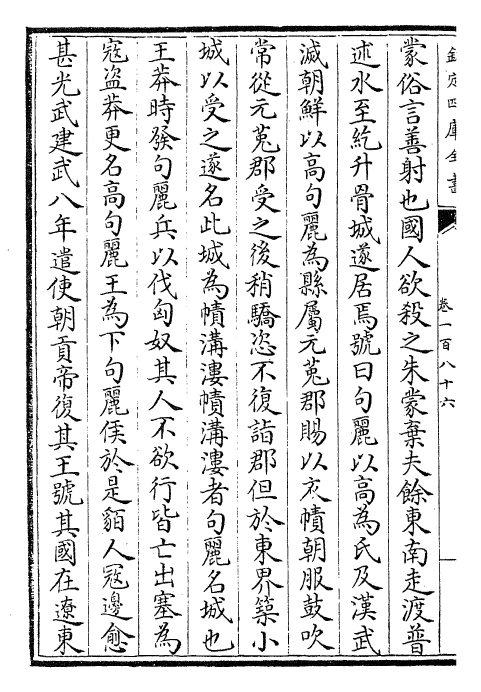 欽定四庫全書
卷一百八十六
蒙俗言善射也國人欲殺之朱蒙棄夫餘東南走渡普
述水至紇升骨城遂居焉號曰句麗以高為氏及漢武
滅朝鮮以高句麗為縣屬元菟郡賜以衣幘朝服鼓吹
常從元菟郡受之後稍驕恣不復詣郡但於東界築小
城以受之遂名此城為幘溝漊幘溝漊者句麗名城也
王莽時發句麗兵以伐匈奴其人不欲行皆亡出塞為
寇盗莽更名高句麗王為下句麗侯於是貊人冦邊愈
甚光武建武八年遣使朝貢帝復其王號其國在遼東